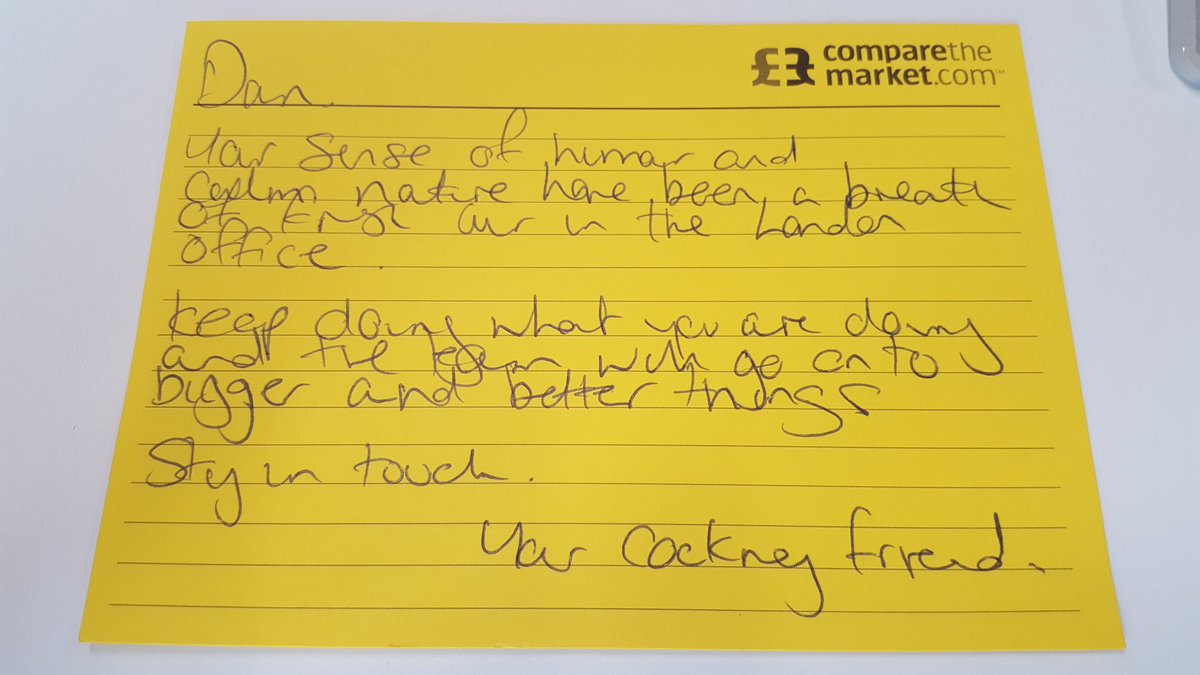 comparethe
market.com™
Dan
Your Sense of humour and
nature have been a breath
of fresh air in the London
office.
keep doing what you are doing
and the team will go on to
bigger and better things
Stay in touch.
Your Cockney friend.